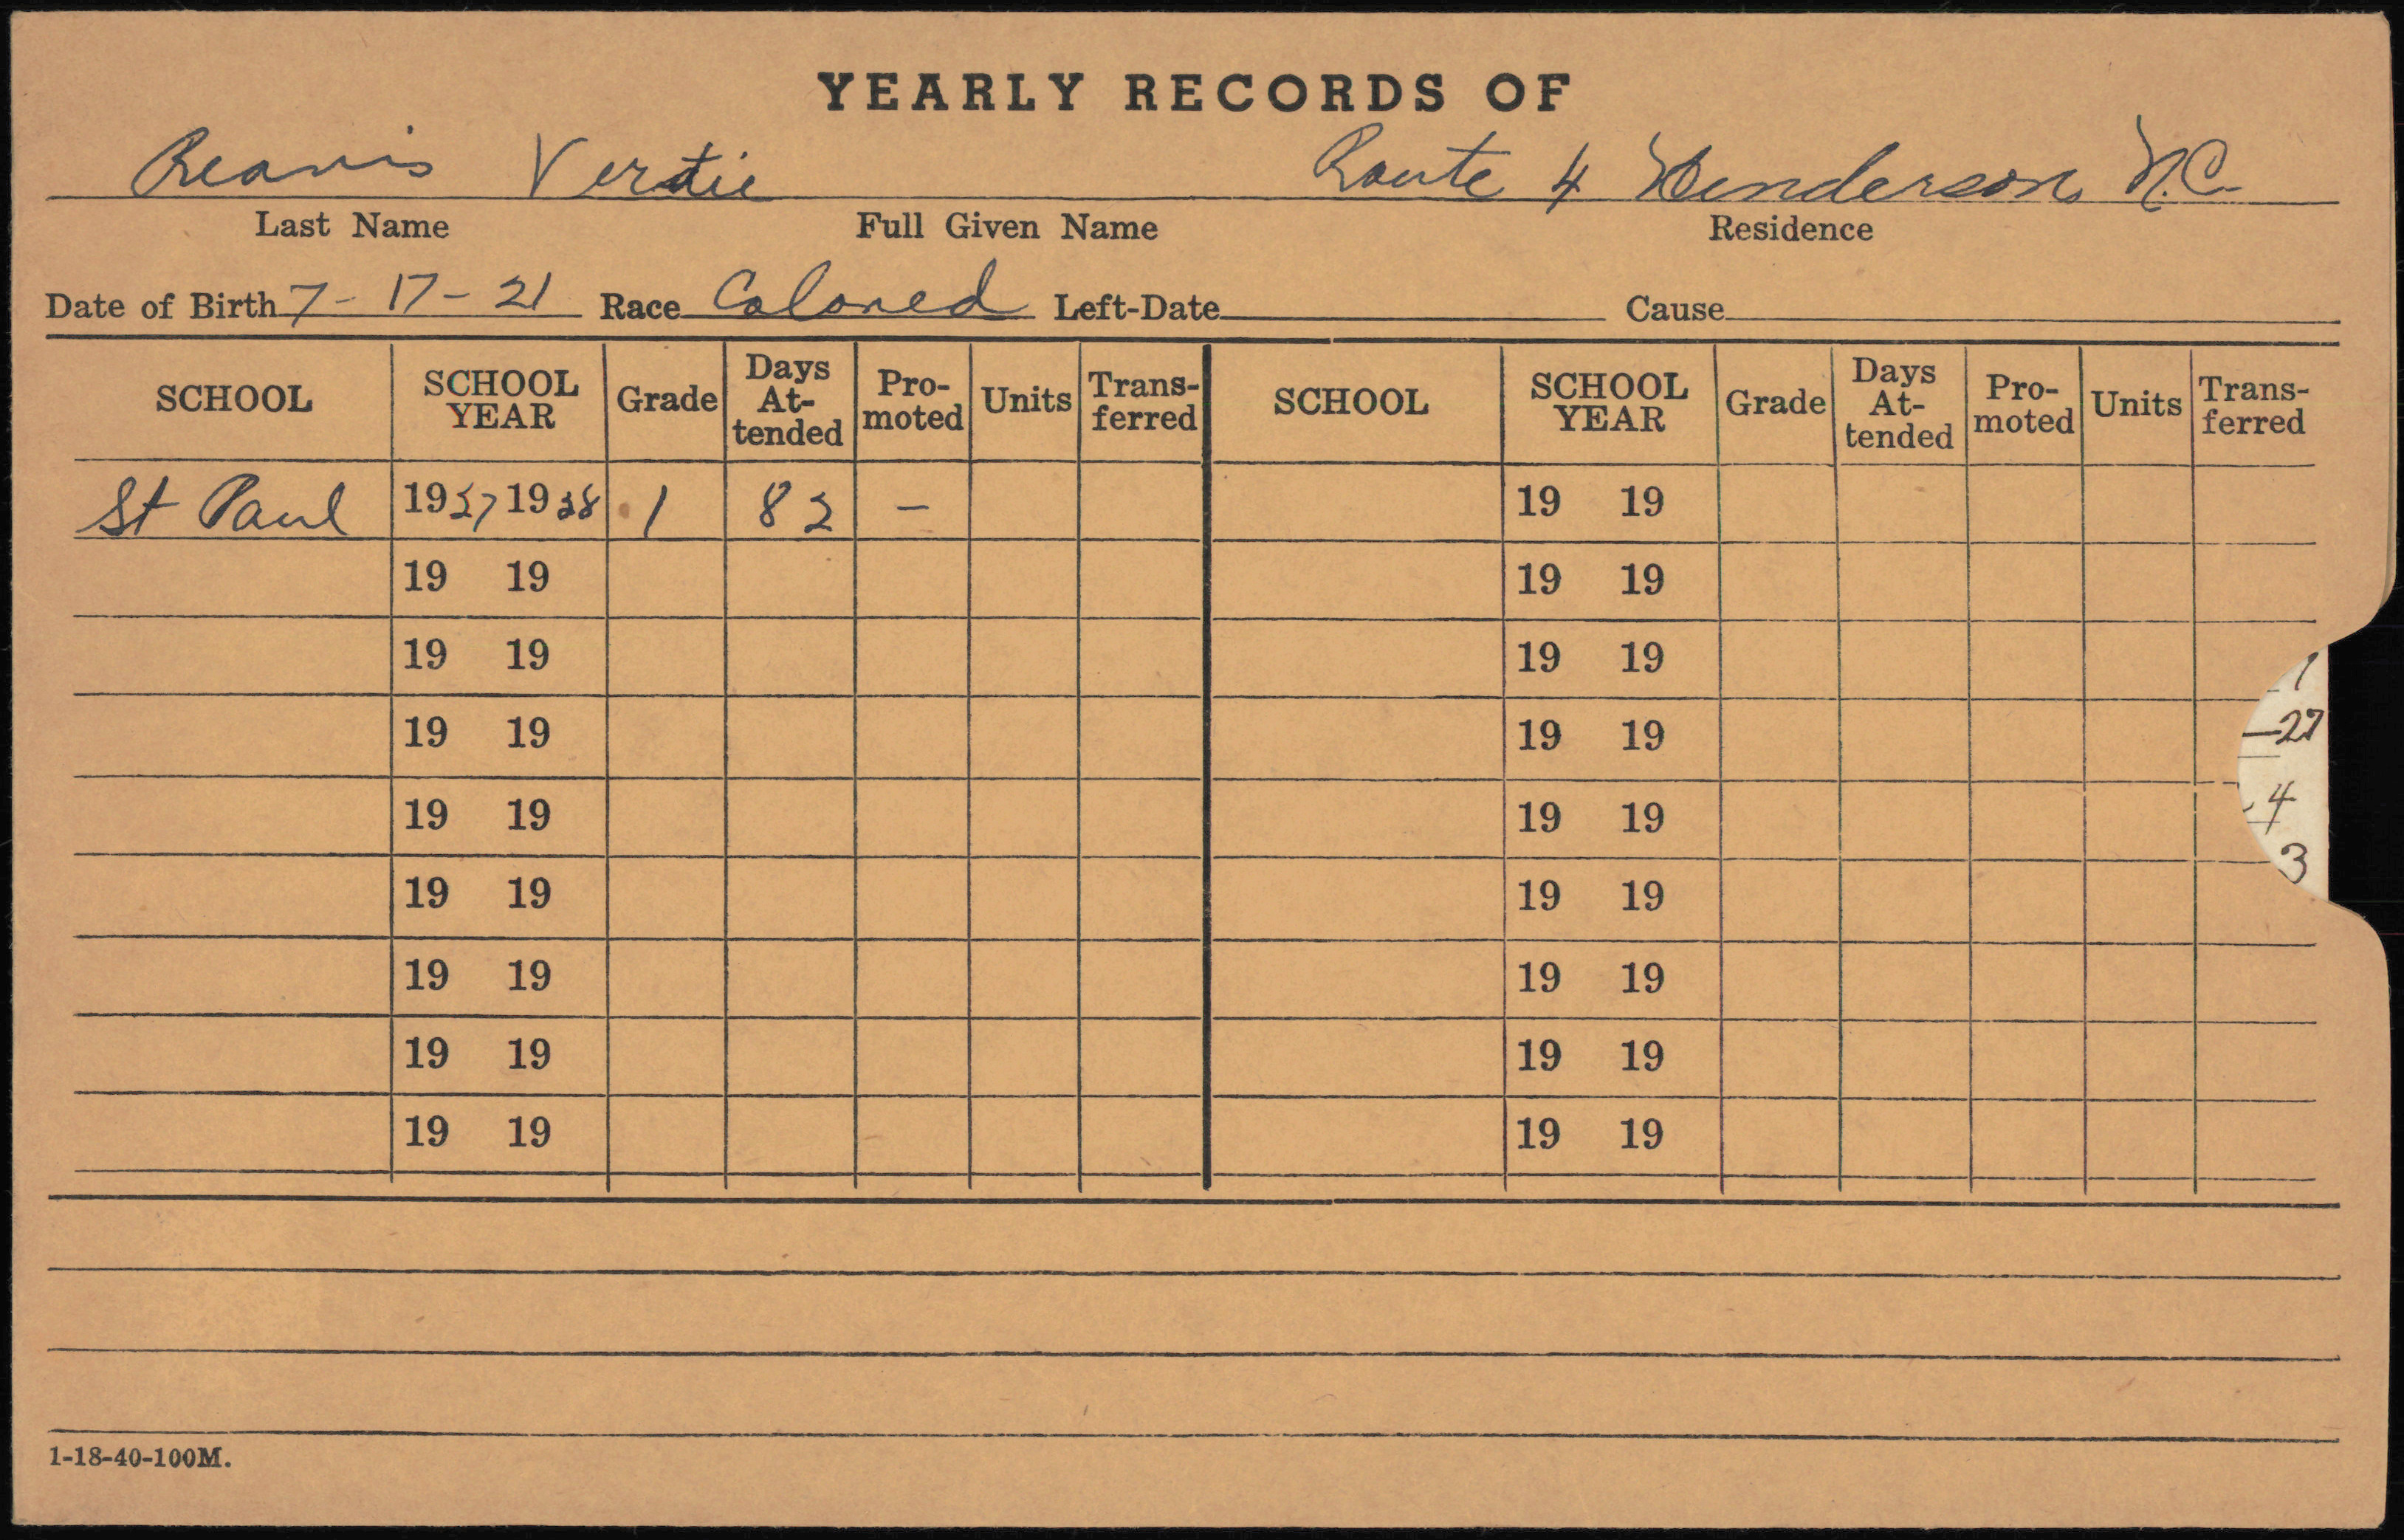 YEARLY RECORDS OF
Reavis Vertie Route 4 Henderson N.C.
Last Name Full Given Name Residence
Date of Birth 7-17-21 Race Colored Left-Date Cause
SCHOOL SCHOOL YEAR Grade Days At-tended Pro-moted Units Trans-ferred SCHOOL SCHOOL YEAR Grade Days At-tended Pro-moted Units Trans-ferred
St Paul 1927 1928 1 82 – 19 19
19 19 19 19
19 19 19 19
1
19 19 19 19
—27
19 19 19 19
4
19 19 19 19
3
19 19 19 19
19 19 19 19
19 19 19 19
1-18-40-100M.